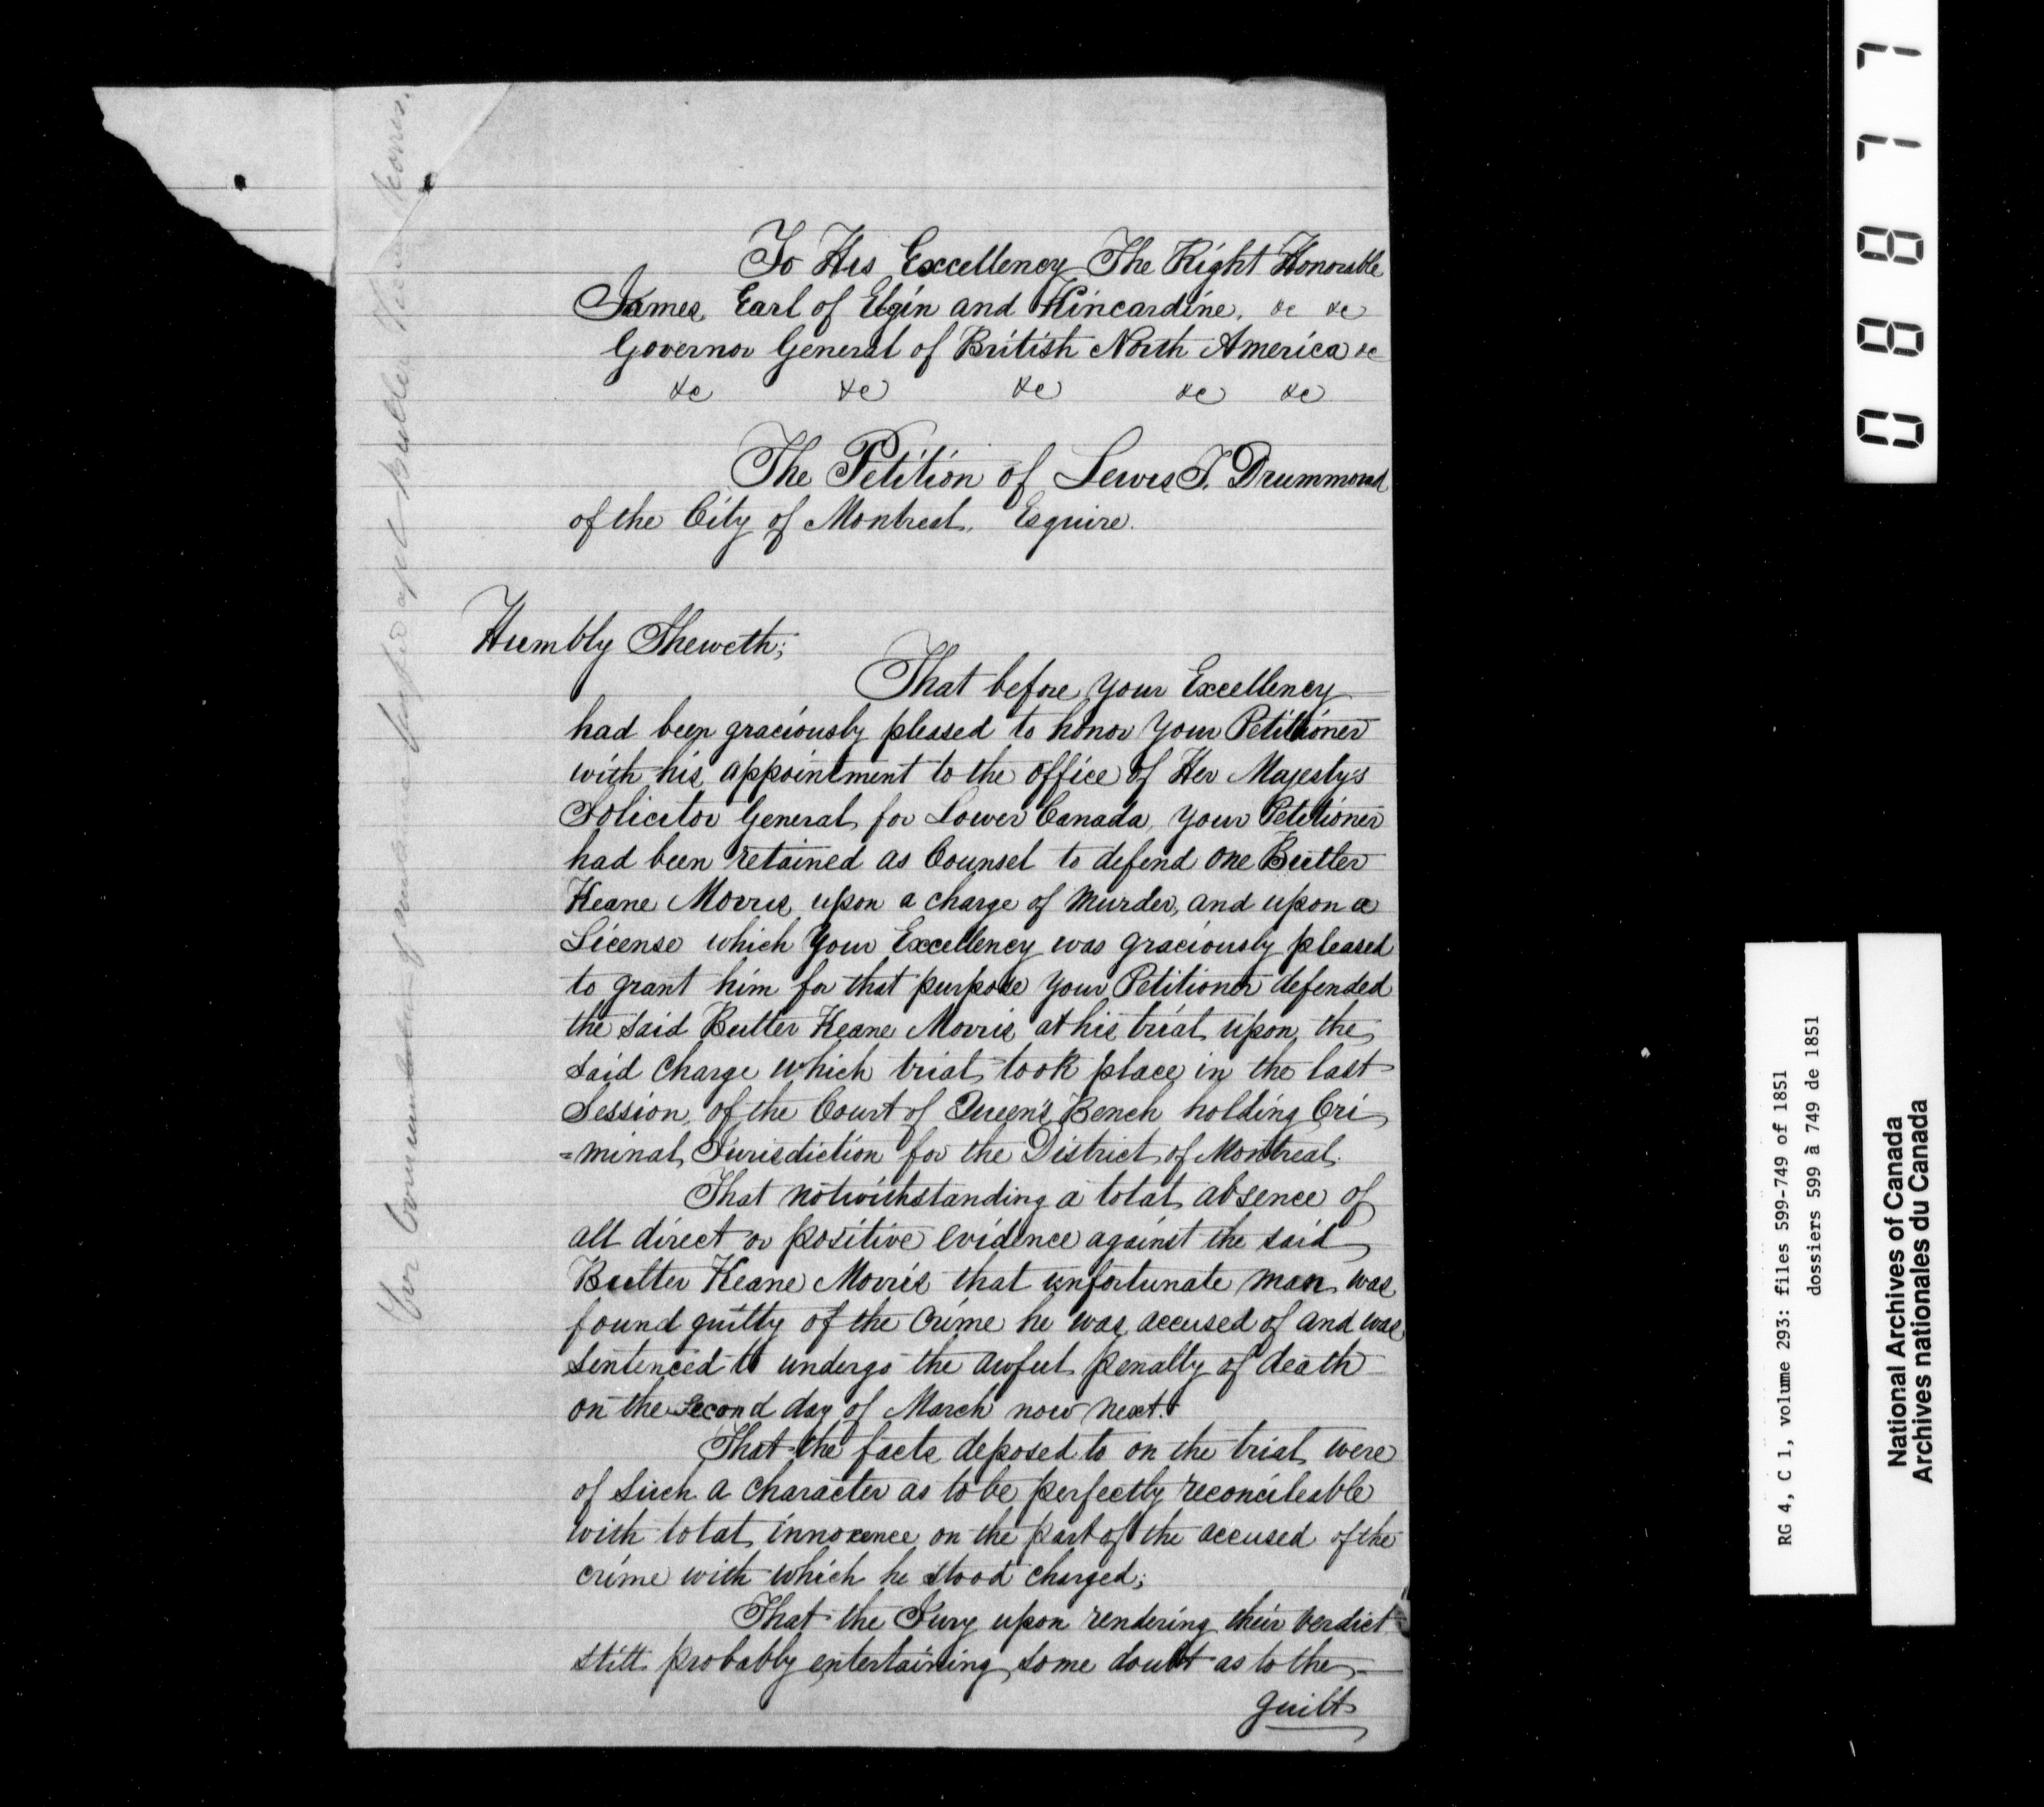 To His Excellency The Right Honorable
James, Earl of Elgin and Kincardine, &c &c
Governor General of British North America &c
&c &c &c &c &c
The Petition of Lewis T. Drummond
of the City of Montreal, Esquire.
Humbly Sheweth;
That before your Excellency
had been graciously pleased to honor your Petitioner
with his appointment to the office of Her Majesty's
Solicitor General for Lower Canada, your Petitioner
had been retained as Counsel to defend one Butler
Keane Morris upon a charge of murder, and upon a
License which your Excellency was graciously pleased
to grant him for that purpose your Petitioner defended
the said Butler Keane Morris at his trial upon the
said charge which trial took place in the last
Session, of the Court of Queen's Bench holding Cri
=minal Jurisdiction for the District of Montreal.
That notwithstanding a total absence of
all direct or positive evidence against the said
Butler Keane Morris that unfortunate man was
found guilty of the crime he was accused of and was
sentenced to undergo the awful penalty of death
on the second day of March now next.
That the facts deposed to on the trial were
of such a character as to be perfectly reconcileable
with total innocence on the part of the accused of the
crime with which he stood charged;
That the Jury upon rendering their verdict
still probably entertaining some doubt as to the
guilt
For Commutation of sentence Butler Keane Morris.
0 8 8 7 7
RG 4, C 1, volume 293: files 599-749 of 1851
dossiers 599 à 749 de 1851
National Archives of Canada
Archives nationales du Canada